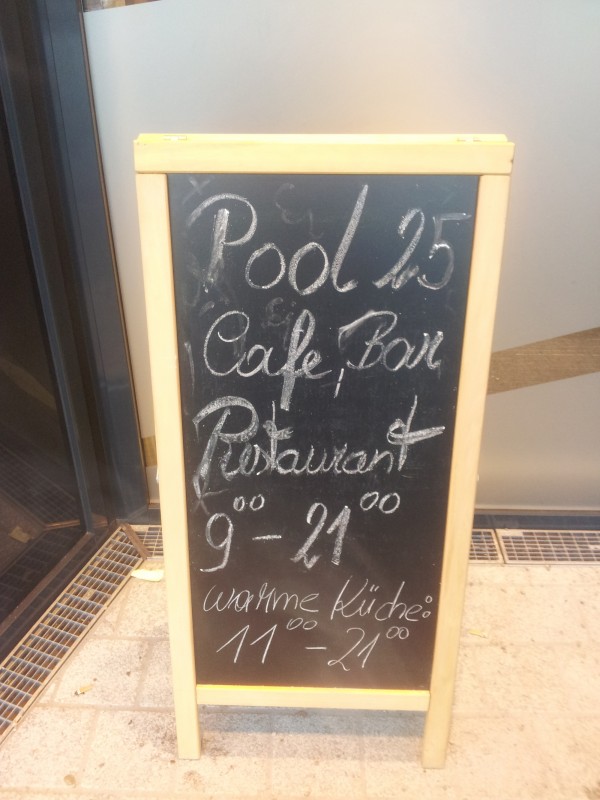 Pool 25
Cafe, Bar
Restaurant
9⁰⁰ - 21⁰⁰
warme Küche:
11⁰⁰ - 21⁰⁰